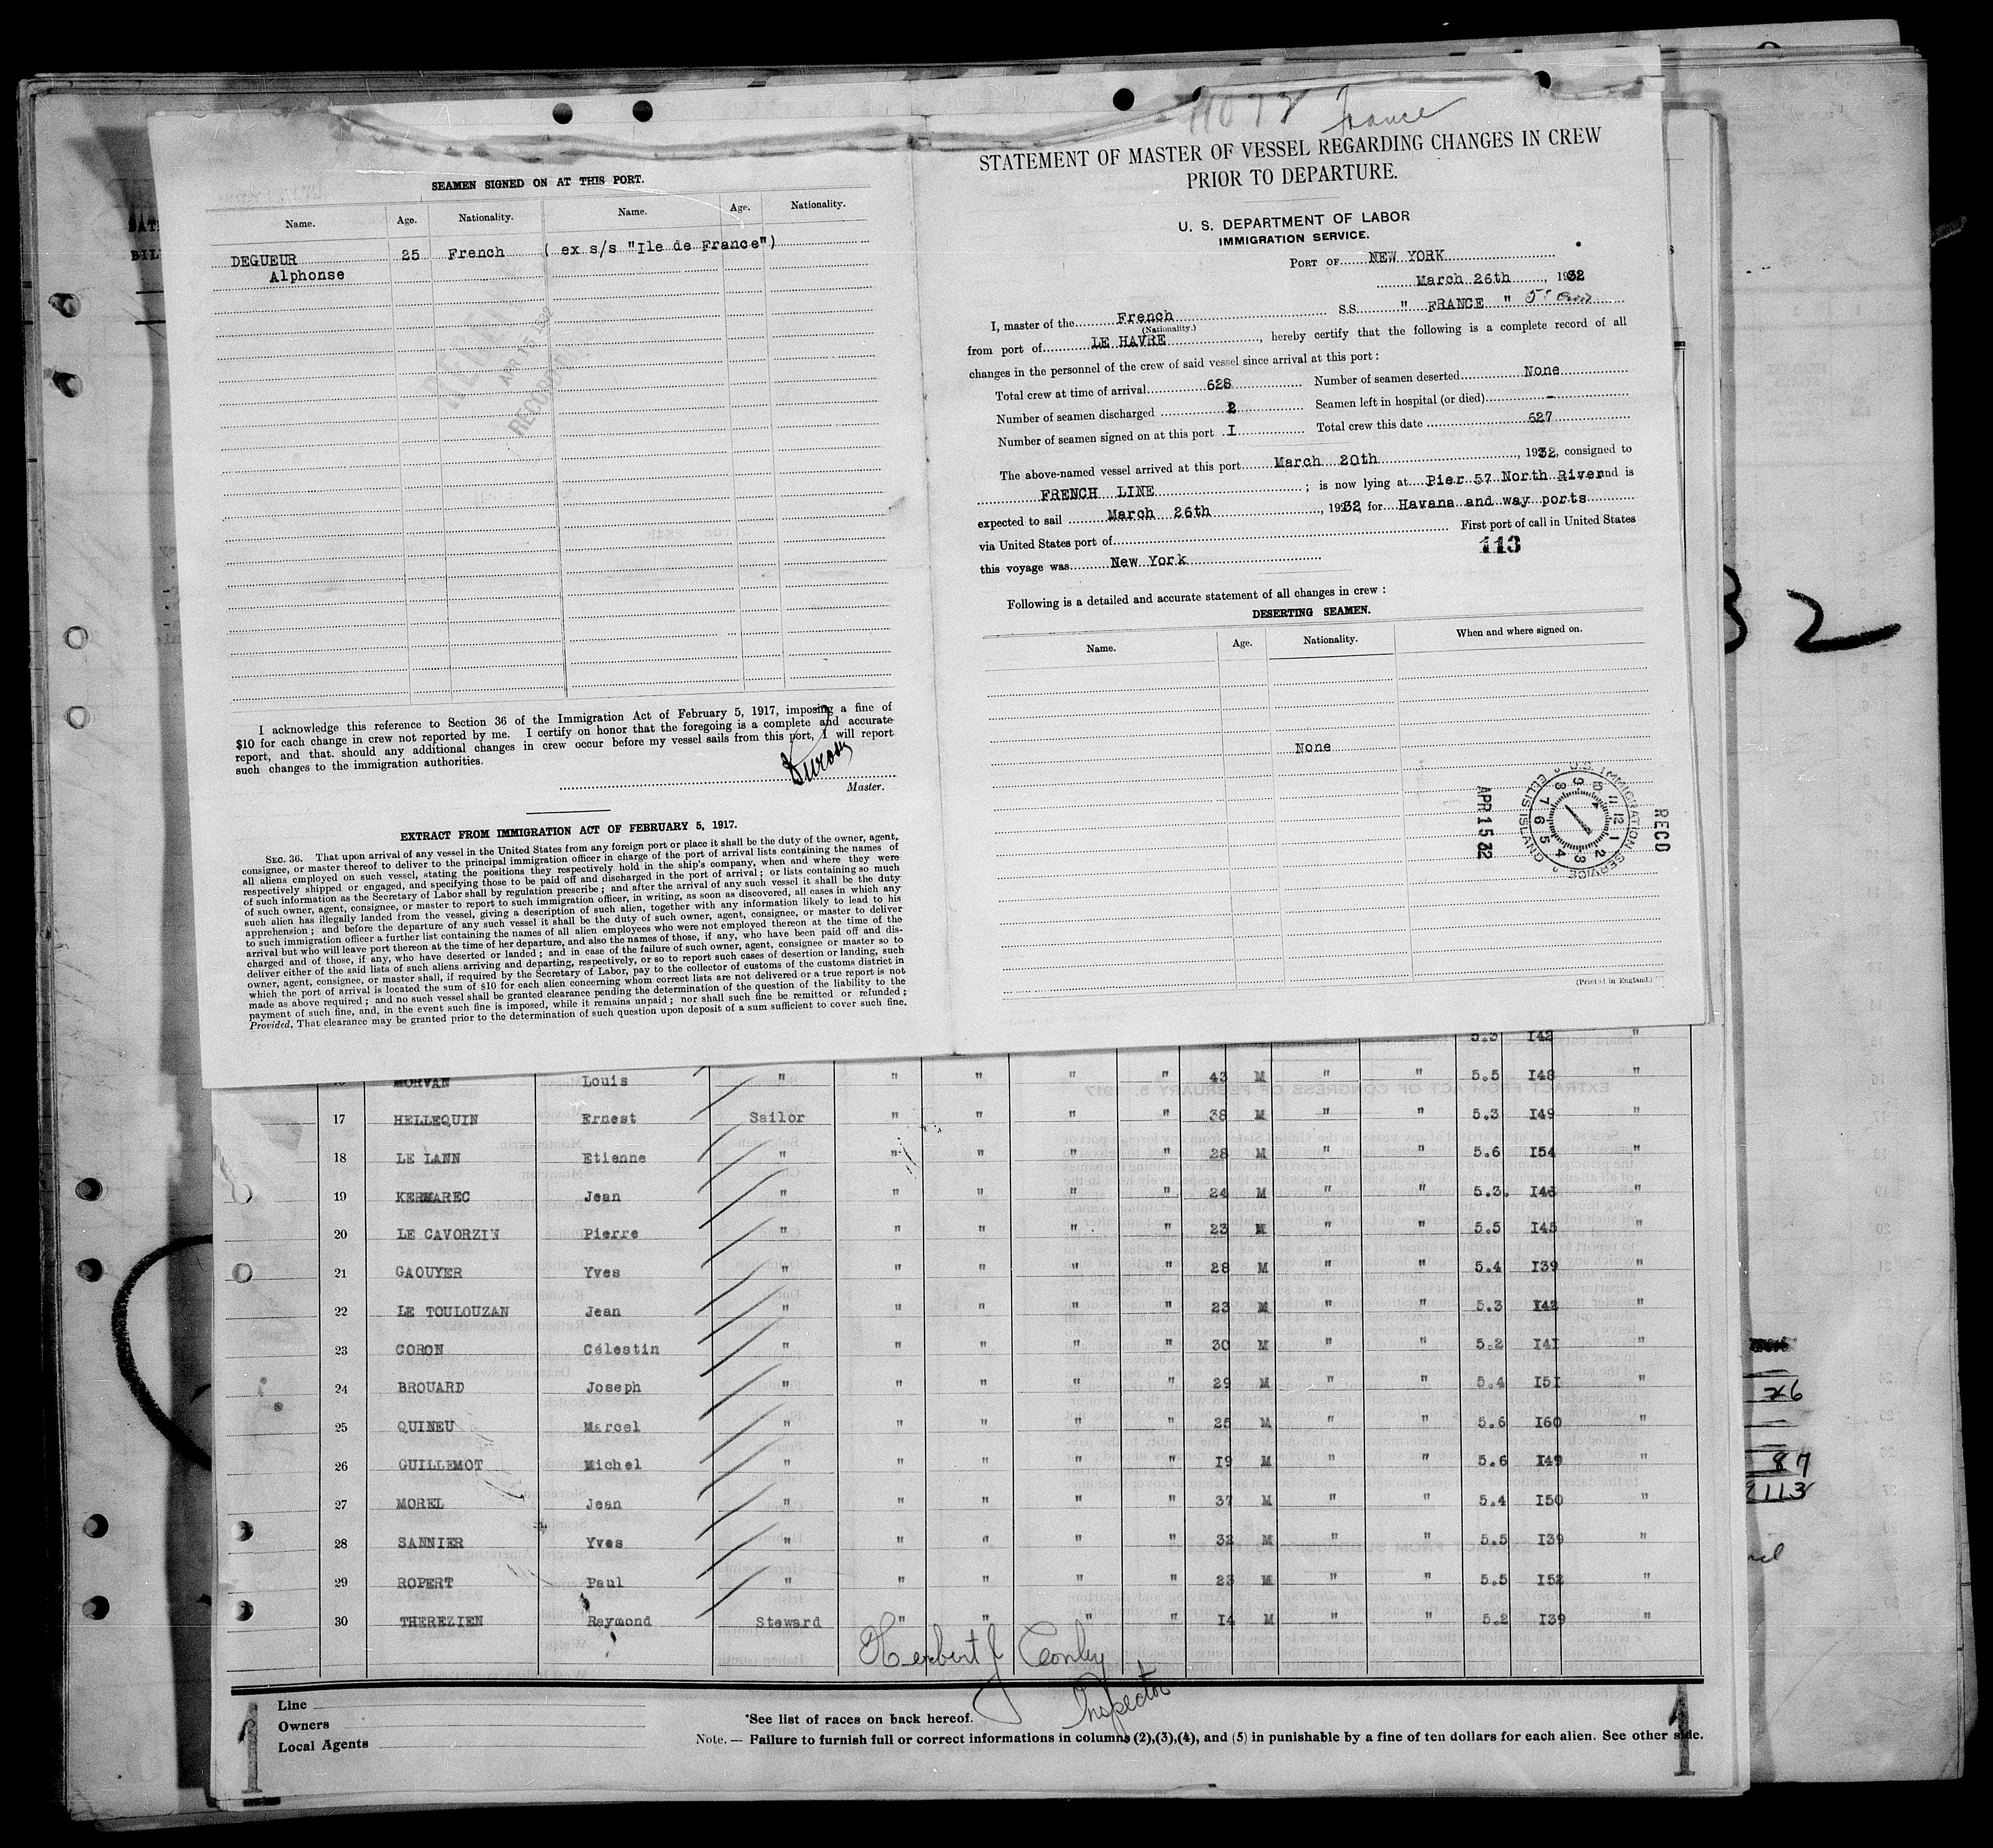 France
STATEMENT OF MASTER OF VESSEL REGARDING CHANGES IN CREW
PRIOR TO DEPARTURE.
U. S. DEPARTMENT OF LABOR
IMMIGRATION SERVICE.
PORT OF NEW YORK
March 26th, 1932
I, master of the French S.S. " FRANCE "
(Nationality.)
from port of LE HAVRE, hereby certify that the following is a complete record of all
changes in the personnel of the crew of said vessel since arrival at this port:
Total crew at time of arrival 628 Number of seamen deserted None
Number of seamen discharged 2 Seamen left in hospital (or died) -
Number of seamen signed on at this port I Total crew this date 627
The above-named vessel arrived at this port March 20th, 1932, consigned to
FRENCH LINE; is now lying at Pier 57 North River and is
expected to sail March 26th, 1932 for Havana and way ports
via United States port of First port of call in United States
this voyage was New York
113
Following is a detailed and accurate statement of all changes in crew:
DESERTING SEAMEN.
Name. Age. Nationality. When and where signed on.
None
RECD
U.S. IMMIGRATION SERVICE ELLIS ISLAND
APR 15 32
(Printed in England.)
SEAMEN SIGNED ON AT THIS PORT.
Name. Age. Nationality. Name. Age. Nationality.
DEGUEUR 25 French ( ex s/s "Ile de France")
Alphonse
APR 15 1932
RECORD
I acknowledge this reference to Section 36 of the Immigration Act of February 5, 1917, imposing a fine of
$10 for each change in crew not reported by me. I certify on honor that the foregoing is a complete and accurate
report, and that. should any additional changes in crew occur before my vessel sails from this port, I will report
such changes to the immigration authorities.
Master.
EXTRACT FROM IMMIGRATION ACT OF FEBRUARY 5, 1917.
SEC. 36. That upon arrival of any vessel in the United States from any foreign port or place it shall be the duty of the owner, agent,
consignee, or master thereof to deliver to the principal immigration officer in charge of the port of arrival lists containing the names of
all aliens employed on such vessel, stating the positions they respectively hold in the ship's company, when and where they were
respectively shipped or engaged, and specifying those to be paid off and discharged in the port of arrival; or lists containing so much
of such information as the Secretary of Labor shall by regulation prescribe; and after the arrival of any such vessel it shall be the duty
of such owner, agent, consignee, or master to report to such immigration officer, in writing, as soon as discovered, all cases in which any
such alien has illegally landed from the vessel, giving a description of such alien, together with any information likely to lead to his
apprehension; and before the departure of any such vessel it shall be the duty of such owner, agent, consignee, or master to deliver
to such immigration officer a further list containing the names of all alien employees who were not employed thereon at the time of the
arrival but who will leave port thereon at the time of her departure, and also the names of those, if any, who have been paid off and dis-
charged and of those, if any, who have deserted or landed; and in case of the failure of such owner, agent, consignee or master so to
deliver either of the said lists of such aliens arriving and departing, respectively, or so to report such cases of desertion or landing, such
owner, agent, consignee, or master shall, if required by the Secretary of Labor, pay to the collector of customs of the customs district in
which the port of arrival is located the sum of $10 for each alien concerning whom correct lists are not delivered or a true report is not
made as above required; and no such vessel shall be granted clearance pending the determination of the question of the liability to the
payment of such fine, and, in the event such fine is imposed, while it remains unpaid; nor shall such fine be remitted or refunded;
Provided, That clearance may be granted prior to the determination of such question upon deposit of a sum sufficient to cover such fine.
5.3 I42
MORVAN Louis " " " " " 43 M " " 5.5 I48 "
17 HELLEQUIN Ernest Sailor " " " " 38 M " " 5.3 I49 "
18 LE LANN Etienne " " " " " 28 M " " 5.6 I54 "
19 KERMAREC Jean " " " " " 24 M " " 5.3. I46 "
20 LE CAVORZIN Pierre " " " " " 23 M " " 5.5 I45 "
21 GAOUYER Yves " " " " " 28 M " " 5.4 I39 "
22 LE TOULOUZAN Jean " " " " " 23 M " " 5.3 I42 "
23 CORON Célestin " " " " " 30 M " " 5.2 I4I "
24 BROUARD Joseph " " " " " 29 M " " 5.4 I5I "
25 QUINEU Marcel " " " " " 25 M " " 5.6 I60 "
26 GUILLEMOT Michel " " " " " I9 M " " 5.6 I49 "
27 MOREL Jean " " " " " 37 M " " 5.4 I50 "
28 SANNIER Yves " " " " " 32 M " " 5.5 I39 "
29 ROPERT Paul " " " " " 23 M " " 5.5 I52 "
30 THEREZIEN Raymond Steward " " " " I4 M " " 5.2 I39 "
Herbert J Conley
Inspector
Line
Owners
Local Agents
*See list of races on back hereof.
Note. — Failure to furnish full or correct informations in columns (2),(3),(4), and (5) in punishable by a fine of ten dollars for each alien. See other side.
1
1
32
26
87
113